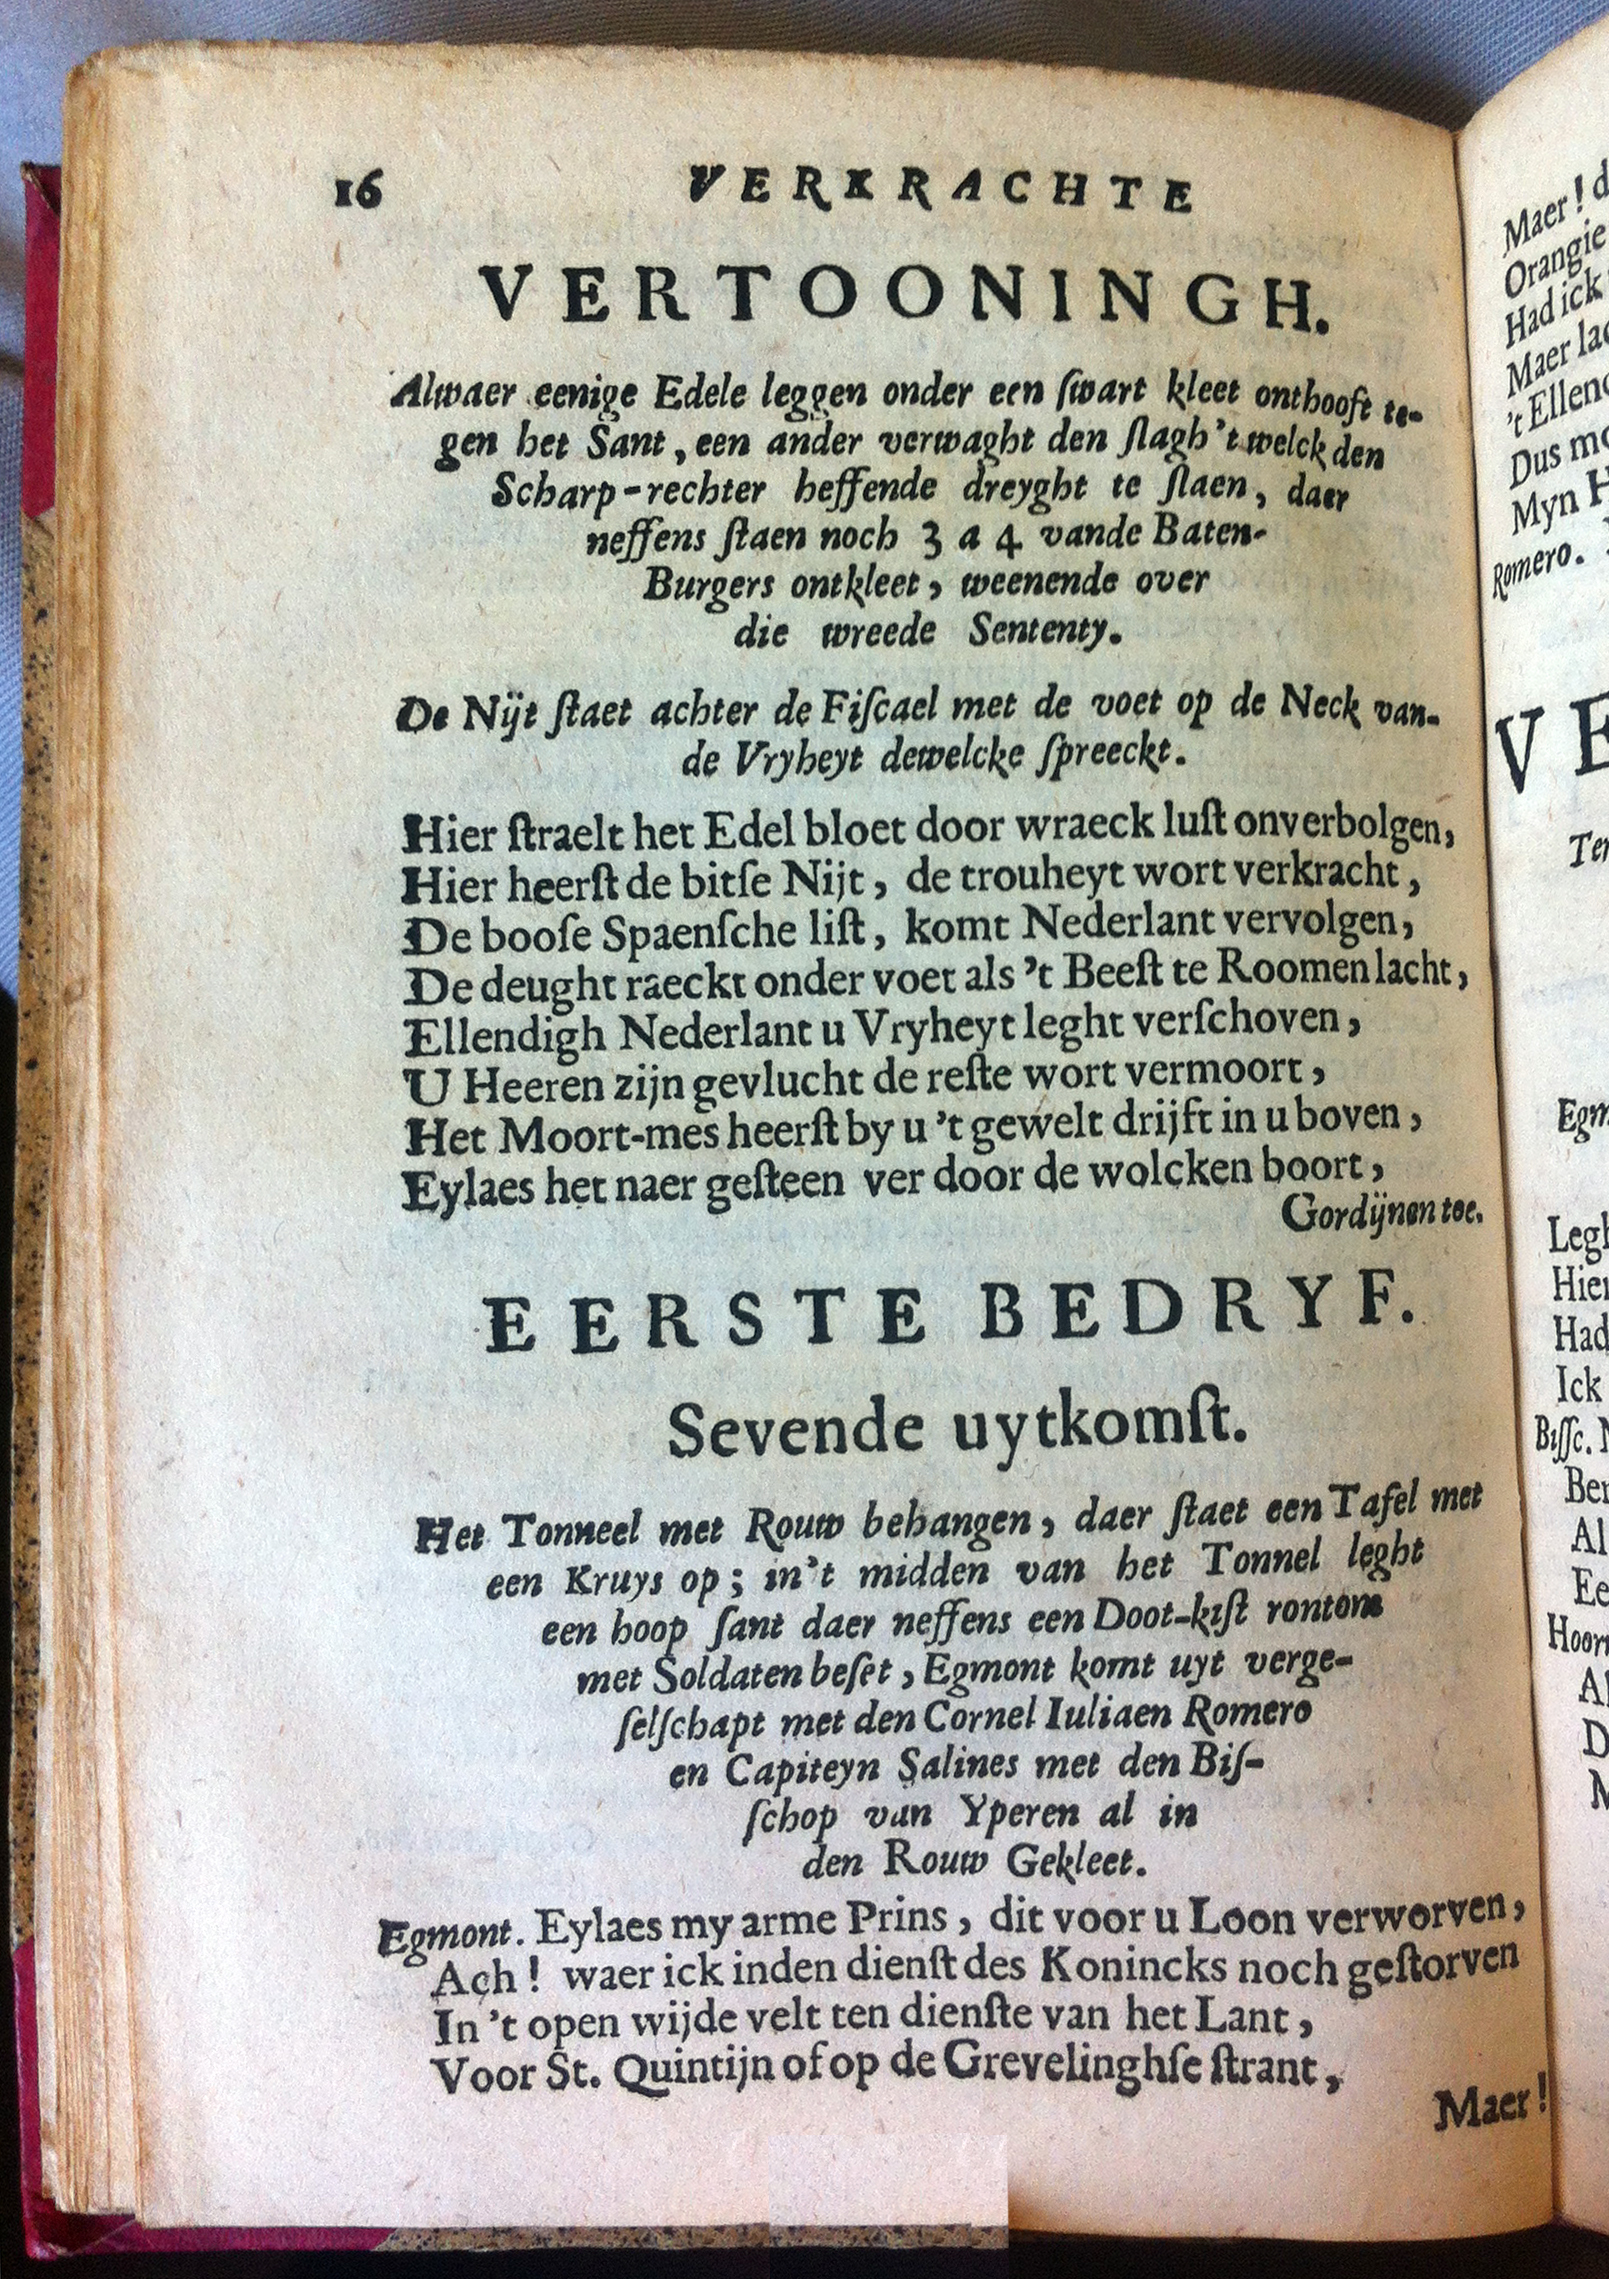 16 VERKRACHTE
VERTOONINGH.
Alwaer eenige Edele leggen onder een ſwart kleet onthooft te-
gen het Sant, een ander verwaght den ſlagh 't welck den
Scharp-rechter heffende dreyght te ſlaen, daer
neffens ſtaen noch 3 a 4 vande Baten-
Burgers ontkleet, weenende over
die wreede Sententy.
De Nijt ſtaet achter de Fiſcael met de voet op de Neck van-
de Vryheyt dewelcke ſpreeckt.
Hier ſtraelt het Edel bloet door wraeck luſt onverbolgen,
Hier heerſt de bitſe Nijt, de trouheyt wort verkracht,
De booſe Spaenſche liſt, komt Nederlant vervolgen,
De deught raeckt onder voet als 't Beeſt te Roomen lacht,
Ellendigh Nederlant u Vryheyt leght verſchoven,
U Heeren zijn gevlucht de reſte wort vermoort,
Het Moort-mes heerſt by u 't gewelt drijft in u boven,
Eylaes het naer geſteen ver door de wolcken boort,
Gordijnen toe.
EERSTE BEDRYF.
Sevende uytkomſt.
Het Tonneel met Rouw behangen, daer ſtaet een Tafel met
een Kruys op; in't midden van het Tonnel leght
een hoop ſant daer neffens een Doot-kiſt rontom
met Soldaten beſet, Egmont komt uyt verge-
ſelſchapt met den Cornel Iuliaen Romero
en Capiteyn Salines met den Biſ-
ſchop van Yperen al in
den Rouw Gekleet.
Egmont. Eylaes my arme Prins, dit voor u Loon verworven,
Ach! waer ick inden dienſt des Konincks noch geſtorven
In 't open wijde velt ten dienſte van het Lant,
Voor St. Quintijn of op de Grevelinghſe ſtrant,
Maer!
Maer! d
Orangie
Had ick
Maer
't
Dus
Myn
Romero.
VE
Legh
Hier
Had
Ick
Biſſc.